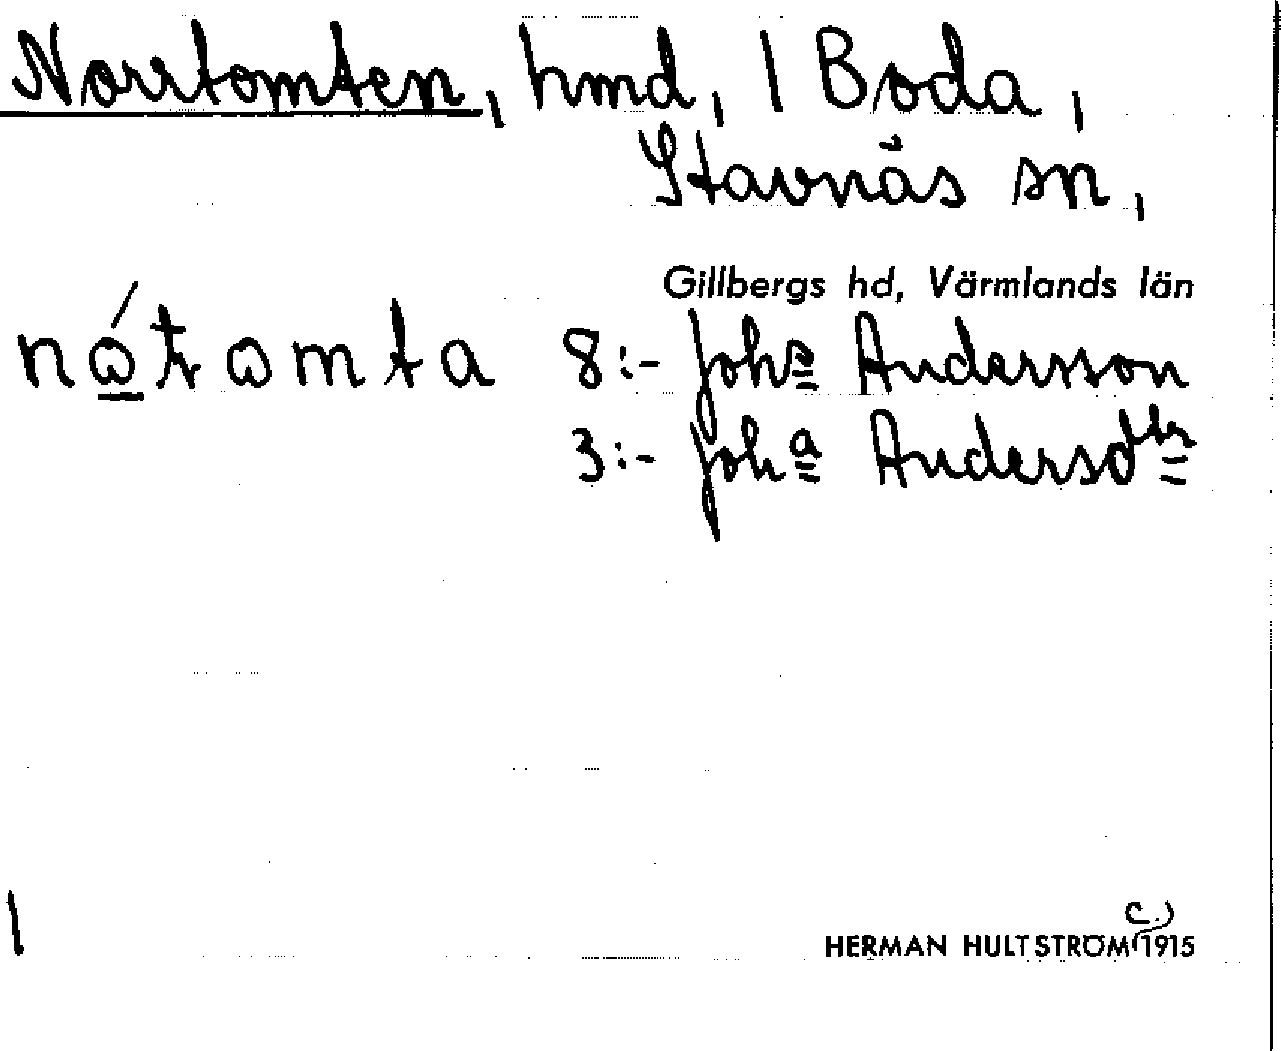 Norrtomten, hmd, 1 Boda,
Stavnäs sn,
Gillbergs hd, Värmlands län
nǻ̱tamta 8:- Johs Andersson
3:- Joha Andersdtr
1
HERMAN HULTSTRÖM (c.) 1915